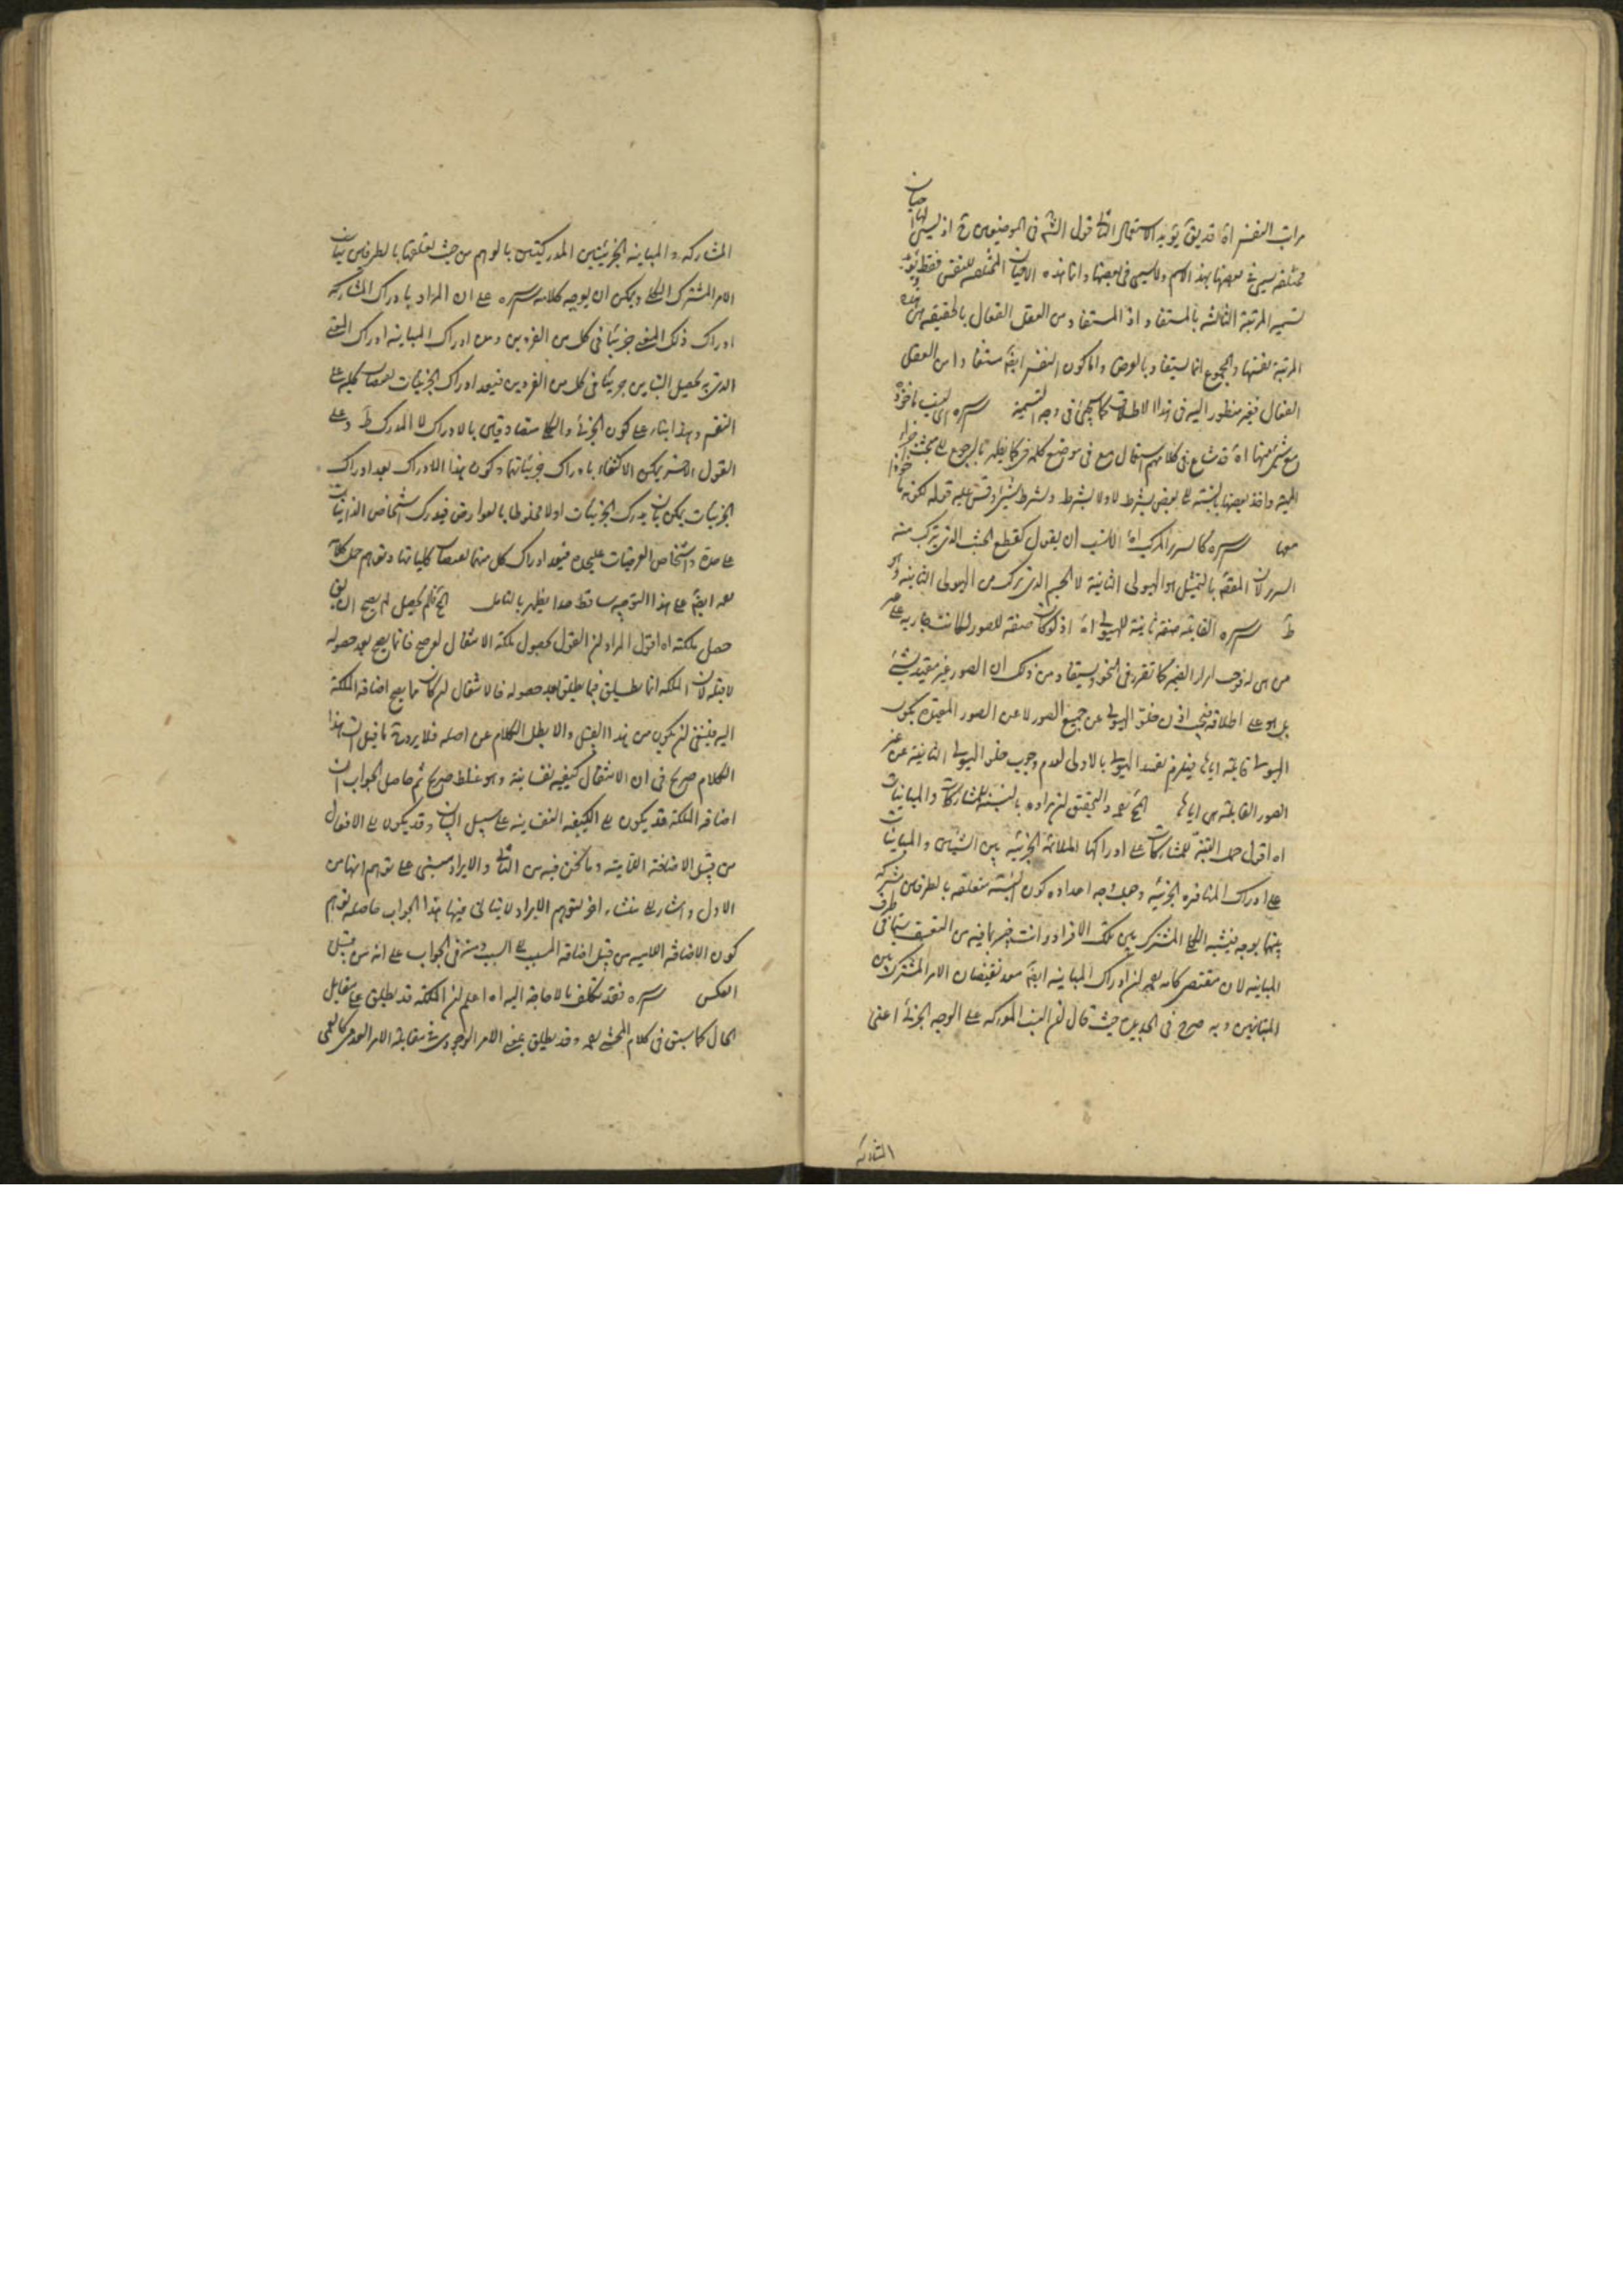 مراتب النفس اه قد يق يؤيد الاستعمال الثاني قول الشم في الموضعين ح اذ ليس لها احيان
مختلفه يسمى في بعضها بهذا الاسم ولا يسمى في بعضها وانما هذه الاحيان المختلفه للنفس فقط
تسميه المرتبة الثالثه بالمستفاد اذ المستفاد من العقل الفعال بالحقيقه هي هذه
المرتبة نفسها والمجموع انما يستفاد بالعرض واما كون النفس ايضا مستفادا من العقل
الفعال فغير منظور اليه في هذا الاطلاق كما سيجئ في وجه التسمية سره اي ليست ماخوذة
مع شئ منها اه قد شاع في كلامهم استعمال مع في موضع كلمه في كما يظهر بالرجوع الى مبحث
المهية واخذ بعضها بالنسبة الى بعض بشرط لا ولا بشرط وبشرط شئ وقس عليه قوله لكونه ماخوذا
معها سره كالسرير المركب اه الانسب ان يقول كقطع الخشب الذي يتركب منه
السرير لان المقصود بالتمثيل هو الهيولى الثانية لا الجسم الذي تركب من الهيولى الثانية وهو
ظ سره القابله صفه ثانية للهيولى اه اذ لو كان صفه للصور لكانت جاريه على غير
من هي له فوجب ابراز الضمير كما تقرر في النحو ويستفاد من ذلك ان الصور غير مقيد بشئ
بل هو على اطلاقه فيجب اذن خلو الهيولى عن جميع الصور لا عن الصور المعينه يكون
الهيولى قابلة اياها فيلزم تقييد الهيولى بالاولى لعدم وجوب خلو الهيولى الثانية عن غير
الصور القابلة هي اياها والتحقيق ان مراده بالنسبة للمشاركات والمباينات
اه اقول حمل التنبه للمشاركات على ادراكها الملائمة الجزئية بين الشيئين والمباينات
على ادراك المنافرة الجزئية وجعل وجه اعداده كون النسبة متعلقه بالطرفين مشتركه
بينهما بوجه فينتبه الكلي المشترك بين تلك الافراد وانت خبير بما فيه من التعسف سيما في طرف
المباينة لان مقتضى كلامه ان ادراك المباينه ايضا معد لفيضان الامر المشترك بين
المتباينين وبه صرح في الجديدة حيث قال ان النسب المدركه على الوجه الجزئى اعنى
المشاركه
المشاركه والمباينه الجزئيتين المدركتين بالوهم من حيث تعلقها بالطرفين بيان
الامر المشترك الكلي ويمكن ان يوجه كلامه سره على ان المراد بادراك المشاركه
ادراك ذلك المعنى جزئيا في كل من الفردين ومن ادراك المباينه ادراك المعنى
الذي به يحصل التباين جزئيا في كل من الفردين فيعد ادراك الجزئيات لفيضان كليه على
النفس وهذا بناء على كون الجزئى والكلي متفاوتين بالادراك لا المدرك ظ وعلى
القول الاخر يمكن الاكتفاء بادراك جزئياتها وكون هذا الادراك بعد ادراك
الجزئيات يمكن بان يدرك الجزئيات اولا مخلوطا بالعوارض فيدرك اشخاص الذاتيات
على حدة واشخاص العرضيات عليحده فيعد ادراك كل منهما لفيضان كلياتها وتوهم حمل كلام
ايضا على هذا التوجيه ساقط جدا يظهر بالتامل فلم يحصل لم يصح ان يق
حصل ملكته اه اقول المراد ان القول بحصول ملكة الانتقال لو صح فانما يصح بعد حصوله
لا قبله لان الملكه انما يطلق فيما يطلق بعد حصوله فالانتقال ان كان مما يصح اضافة الملكة
اليه فينبغي ان يكون من هذا القبيل والا بطل الكلام عن اصله فلا يرد ما قيل ان هذا
الكلام صريح في ان الانتقال كيفيه نفسانية وهو غلط صريح ثم حاصل الجواب ان
اضافه الملكة قد يكون الى الكيفيه النفسانيه على سبيل البيان وقد يكون الى الافعال
من قبيل الاضافة اللامية وما نحن فيه من الثاني والايراد مبنى على توهم انها من
الاول واشار الى منشاء اخر لتوهم الايراد لا يتاتى فيها هذا الجواب حاصله توهم
كون الاضافه اللاميه من قبيل اضافة المسبب الى السبب في الجواب على انه من قبيل
العكس سره فقد تكلف بالا حاجة اليه اه اعلم ان الملكة قد يطلق على مقابل
الحال كما سبق في كلام المحشى وقد يطلق بمعنى الامر الوجودي في مقابلة الامر العدمى كالعمى